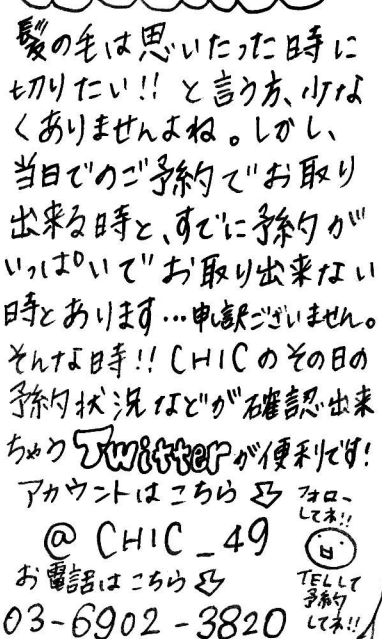 髪の毛は思いたった時に
切りたい!! と言う方、少な
くありませんよね。しかし、
当日でのご予約でお取り
出来る時と、すでに予約が
いっぱいでお取り出来ない
時とあります…申訳ございません。
そんな時!! CHICのその日の
予約状況などが確認出来
ちゃうTwitterが便利です!
アカウントはこちら
フォロー
してネ!!
@CHIC_49
お電話はこちら
TELして
予約
してネ!!
03-6902-3820